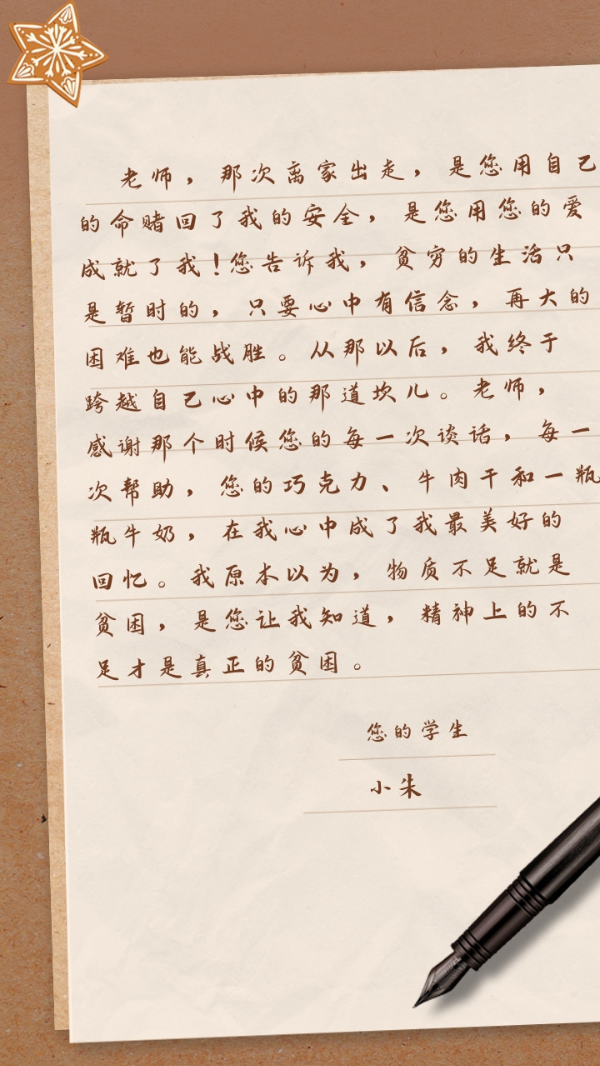 老师，那次离家出走，是您用自己
的命赌回了我的安全，是您用您的爱
成就了我！您告诉我，贫穷的生活只
是暂时的，只要心中有信念，再大的
困难也能战胜。从那以后，我终于
跨越自己心中的那道坎儿。老师，
感谢那个时候您的每一次谈话，每一
次帮助，您的巧克力、牛肉干和一瓶
瓶牛奶，在我心中成了我最美好的
回忆。我原本以为，物质不足就是
贫困，是您让我知道，精神上的不
足才是真正的贫困。
您的学生
小朱